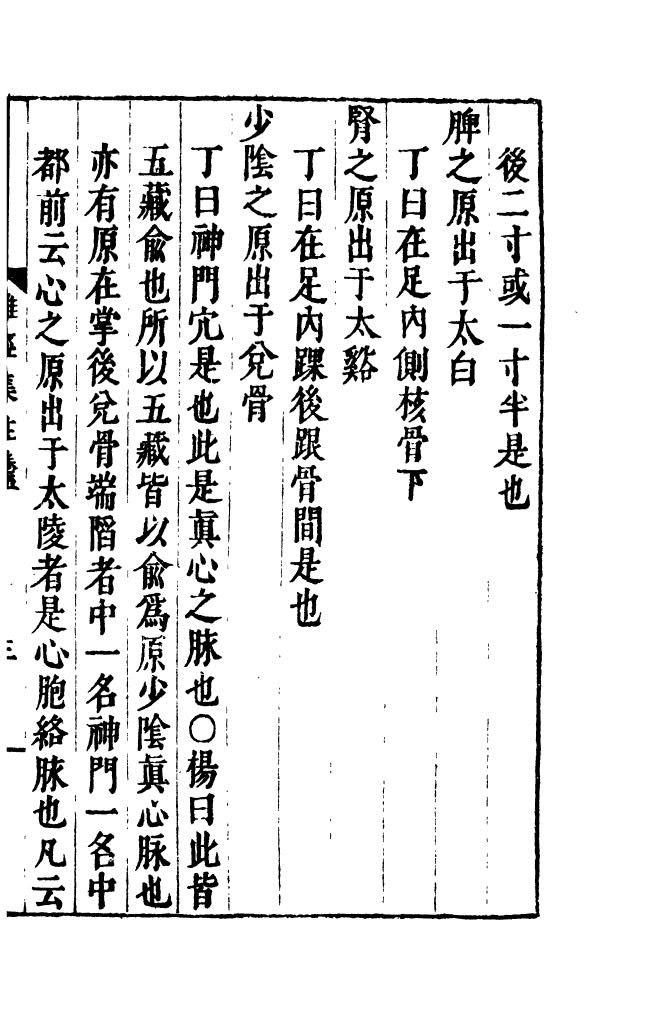 後二寸或一寸半是也
脾之原出于太白
丁曰在足內側核骨下
腎之原出于太谿
丁曰在足內踝後跟骨間是也
少陰之原出于兌骨
丁曰神門宂是也此是眞心之脉也〇楊曰此皆
五藏兪也所以五藏皆以兪爲原少陰眞心脉也
亦有原在掌後兌骨端陷者中一名神門一名中
都前云心之原出于太陵者是心胞絡脉也凡云
三